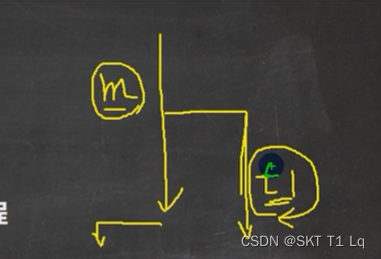 m
t1
程
CSDN @SKT T1 Lq